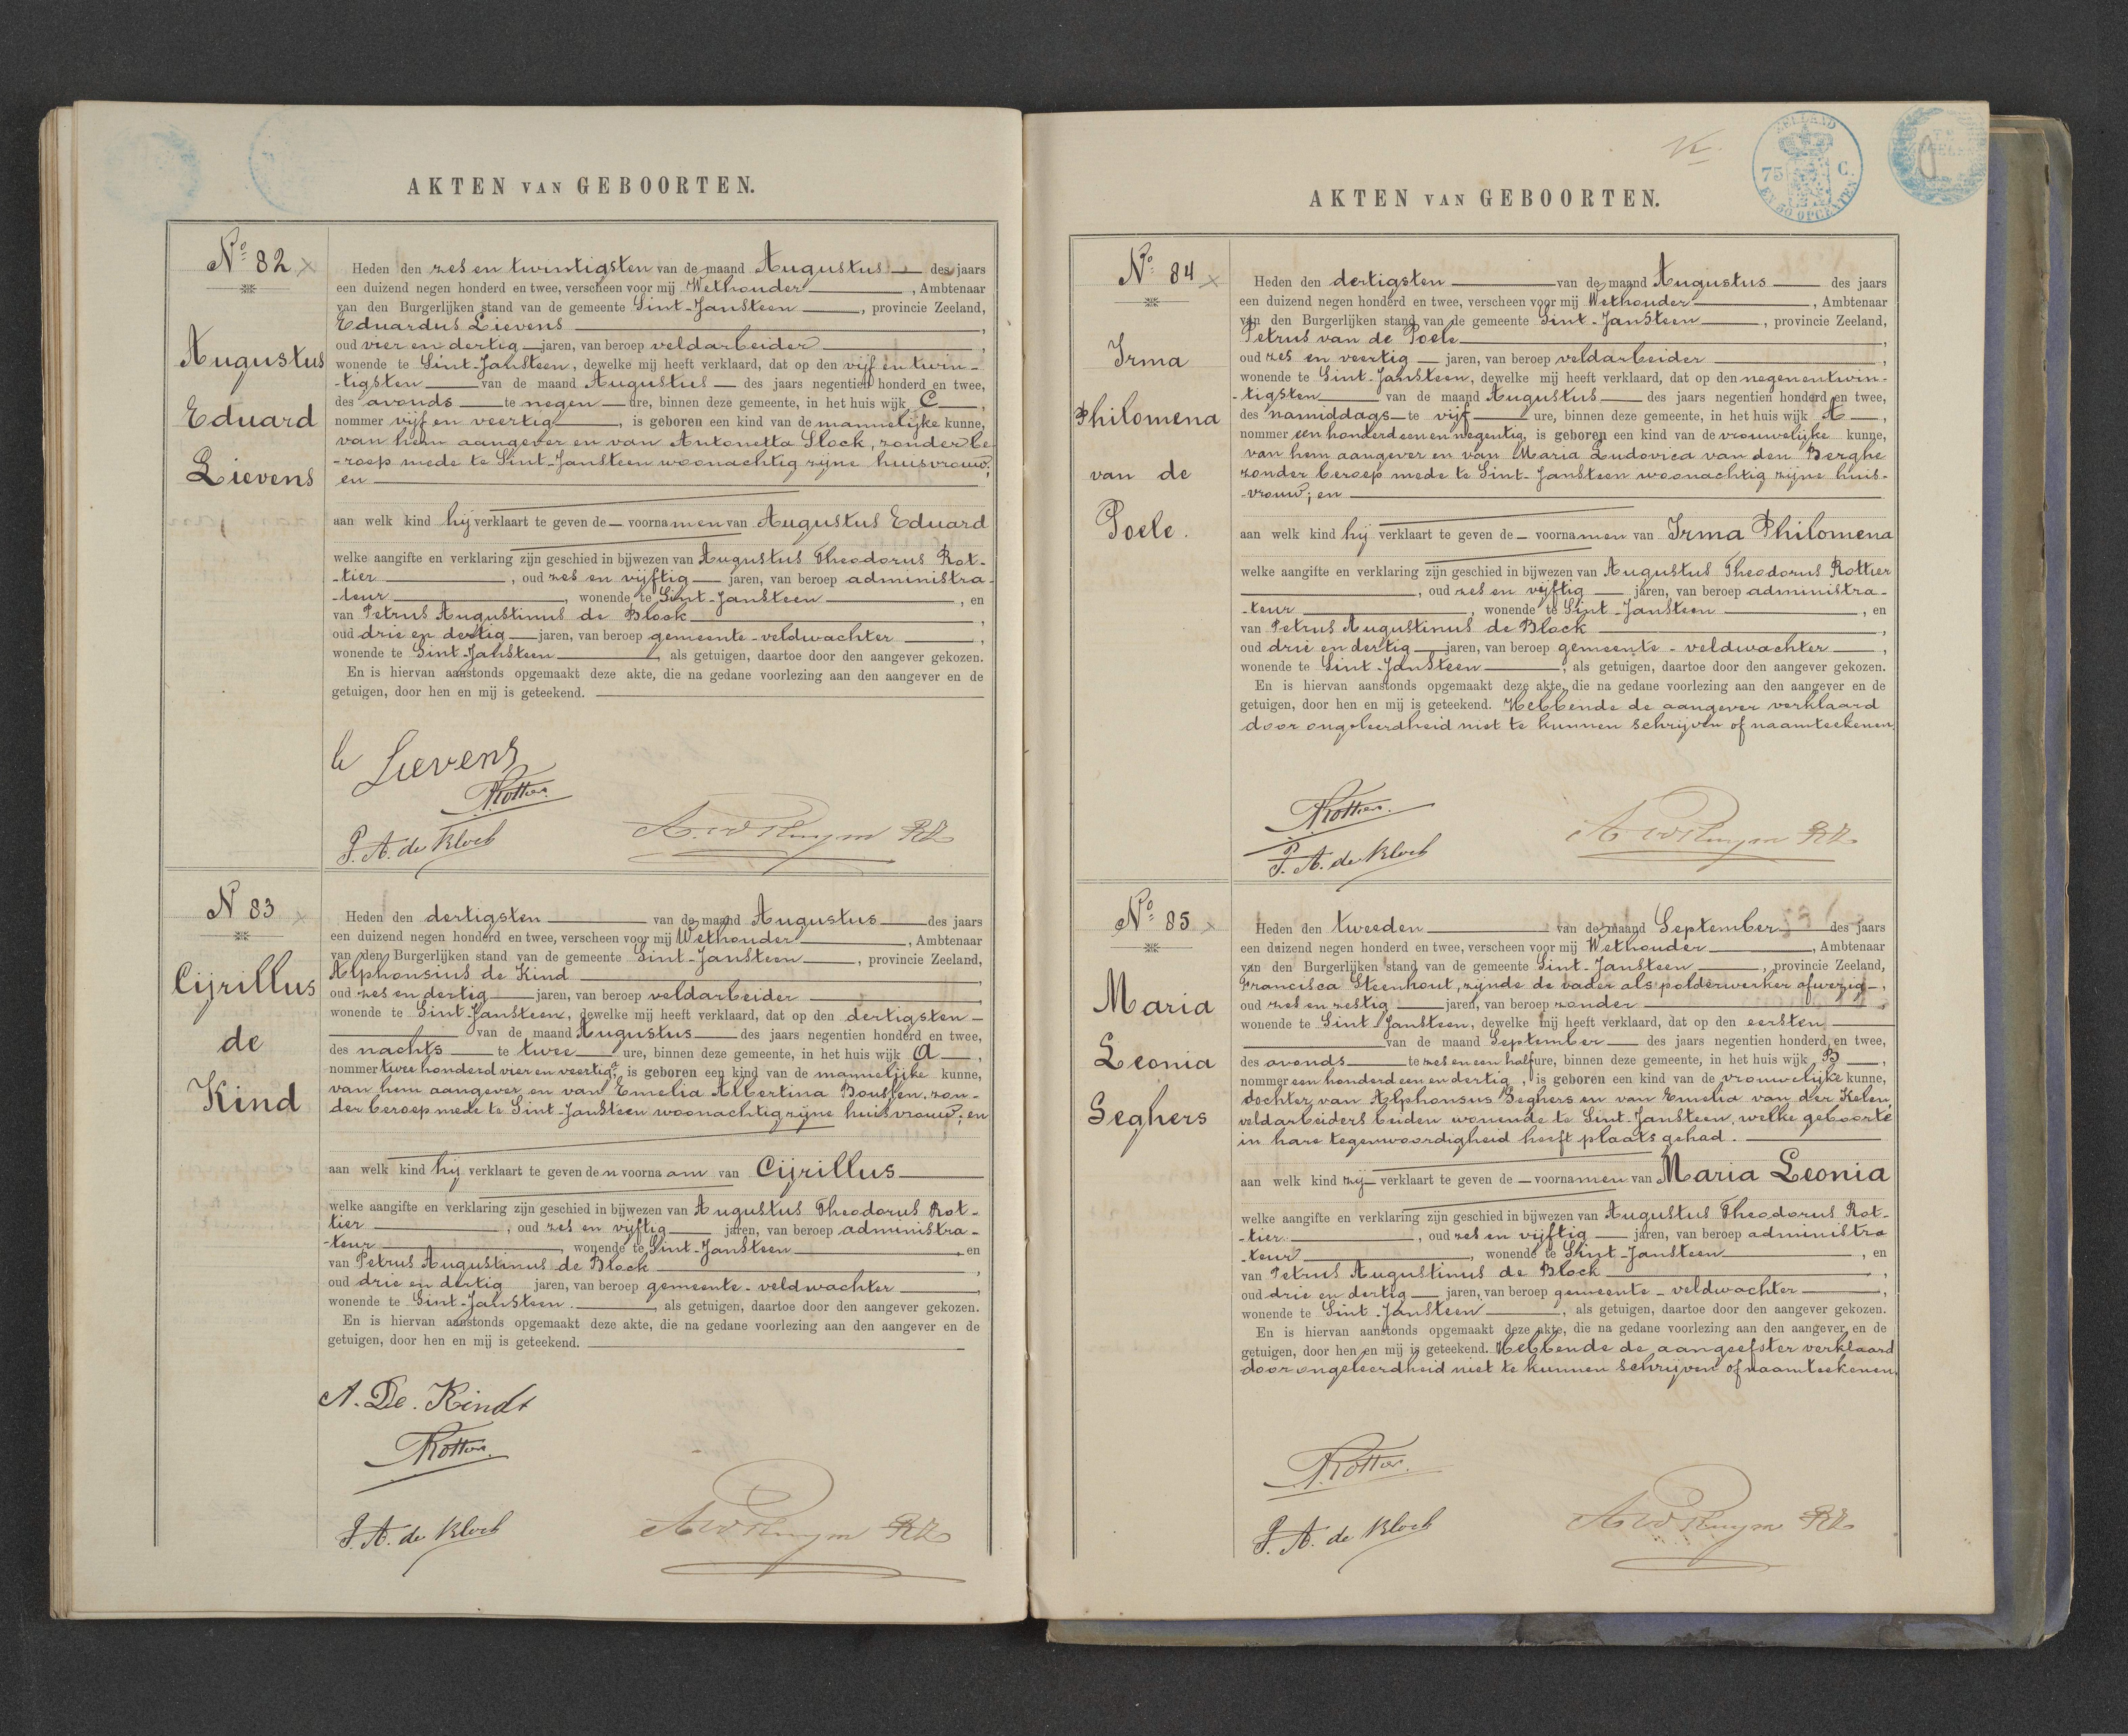 AKTEN VAN GEBOORTEN.
No 82
Augustus
Eduard
Lievens
Heden den zes en twintigsten van de maand Augustus des jaars
een duizend negen honderd en twee, verscheen voor mij Wethouder, Ambtenaar
van den Burgerlijken stand van de gemeente Sint-Jansteen, provincie Zeeland,
Eduardus Lievens,
oud vier en dertig jaren, van beroep veldarbeider,
wonende te Sint-Jansteen, dewelke mij heeft verklaard, dat op den vijf en twin-
-tigsten van de maand Augustus des jaars negentien honderd en twee,
des avonds te negen ure, binnen deze gemeente, in het huis wijk C,
nommer vijf en veertig, is geboren een kind van de mannelijke kunne,
van hem aangever en van Antonetta Slock, zonder be
-roep mede te Sint-Jansteen woonachtig zijne huisvrouw;
en
aan welk kind hij verklaart te geven de voornamen van Augustus Eduard
welke aangifte en verklaring zijn geschied in bijwezen van Augustus Theodorus Rot-
-tier, oud zes en vijftig jaren, van beroep administra-
-teur, wonende te Sint-Jansteen, en
van Petrus Augustinus de Block,
oud drie en dertig jaren, van beroep gemeente-veldwachter,
wonende te Sint-Jansteen, als getuigen, daartoe door den aangever gekozen.
En is hiervan aanstonds opgemaakt deze akte, die na gedane voorlezing aan den aangever en de
getuigen, door hen en mij is geteekend.
Lievens
Rottier
P. A. de Block
N 83
Cijrillus
de
Kind
Heden den dertigsten van de maand Augustus des jaars
een duizend negen honderd en twee, verscheen voor mij Wethouder, Ambtenaar
van den Burgerlijken stand van de gemeente Sint-Jansteen, provincie Zeeland,
Alphonsius de Kind,
oud zes en dertig jaren, van beroep veldarbeider,
wonende te Sint-Jansteen, dewelke mij heeft verklaard, dat op den dertigsten
van de maand Augustus des jaars negentien honderd en twee,
des nachts te twee ure, binnen deze gemeente, in het huis wijk A,
nommer twee honderd vier en veertig, is geboren een kind van de mannelijke kunne,
van hem aangever en van Emelia Albertina Boussen, zon-
der beroep mede te Sint-Jansteen woonachtig zijne huisvrouw; en
aan welk kind hij verklaart te geven den voornaam van Cijrillus
welke aangifte en verklaring zijn geschied in bijwezen van Augustus Theodorus Rot-
tier, oud zes en vijftig jaren, van beroep administra-
-teur, wonende te Sint-Jansteen, en
van Petrus Augustinus de Block,
oud drie en dertig jaren, van beroep gemeente-veldwachter,
wonende te Sint-Jansteen., als getuigen, daartoe door den aangever gekozen.
En is hiervan aanstonds opgemaakt deze akte, die na gedane voorlezing aan den aangever en de
getuigen, door hen en mij is geteekend.
A. De. Kindt
Rottier
P. A. de Block
ZEELAND
75 C.
EN 50 OPCENTEN
AKTEN VAN GEBOORTEN.
No 84
Irma
Philomena
van de
Poele.
Heden den dertigsten van de maand Augustus des jaars
een duizend negen honderd en twee, verscheen voor mij Wethouder, Ambtenaar
van den Burgerlijken stand van de gemeente Sint-Jansteen, provincie Zeeland,
Petrus van de Poele,
oud zes en veertig jaren, van beroep veldarbeider,
wonende te Sint-Jansteen, dewelke mij heeft verklaard, dat op den negen en twin-
-tigsten van de maand Augustus des jaars negentien honderd en twee,
des namiddags te vijf ure, binnen deze gemeente, in het huis wijk A,
nommer een honderd een en negentig, is geboren een kind van de vrouwelijke kunne,
van hem aangever en van Maria Ludovica van den Berghe
zonder beroep mede te Sint-Jansteen woonachtig zijne huis-
-vrouw; en
aan welk kind hij verklaart te geven de voornamen van Irma Philomena
welke aangifte en verklaring zijn geschied in bijwezen van Augustus Theodorus Rottier
, oud zes en vijftig jaren, van beroep administra-
-teur, wonende te Sint-Jansteen, en
van Petrus Augustinus de Block,
oud drie en dertig jaren, van beroep gemeente-veldwachter,
wonende te Sint-Jansteen, als getuigen, daartoe door den aangever gekozen.
En is hiervan aanstonds opgemaakt deze akte, die na gedane voorlezing aan den aangever en de
getuigen, door hen en mij is geteekend. Hebbende de aangever verklaard
door ongeleerdheid niet te kunnen schrijven of naamteekenen.
Rottier.
P. A. de Block
No 85
Maria
Leonia
Seghers
Heden den tweeden van de maand September des jaars
een duizend negen honderd en twee, verscheen voor mij Wethouder, Ambtenaar
van den Burgerlijken stand van de gemeente Sint-Jansteen, provincie Zeeland,
Francisca Steenhout, zijnde de vader als polderwerker afwezig,
oud zes en zestig jaren, van beroep zonder,
wonende te Sint Jansteen, dewelke mij heeft verklaard, dat op den eersten
van de maand September des jaars negentien honderd en twee,
des avonds te zes en een half ure, binnen deze gemeente, in het huis wijk B,
nommer een honderd een en dertig, is geboren een kind van de vrouwelijke kunne,
dochter van Alphonsus Seghers en van Emelia van der Kelen,
veldarbeiders beiden wonende te Sint-Jansteen, welke geboorte
in hare tegenwoordigheid heeft plaats gehad.
aan welk kind zij verklaart te geven de voornamen van Maria Leonia
welke aangifte en verklaring zijn geschied in bijwezen van Augustus Theodorus Rot-
-tier, oud zes en vijftig jaren, van beroep administra
-teur, wonende te Sint-Jansteen, en
van Petrus Augustinus de Block,
oud drie en dertig jaren, van beroep gemeente-veldwachter,
wonende te Sint-Jansteen, als getuigen, daartoe door den aangever gekozen.
En is hiervan aanstonds opgemaakt deze akte, die na gedane voorlezing aan den aangever en de
getuigen, door hen en mij is geteekend. Hebbende de aangeefster verklaard
door ongeleerdheid niet te kunnen schrijven of naamteekenen.
Rottier.
P. A. de Block